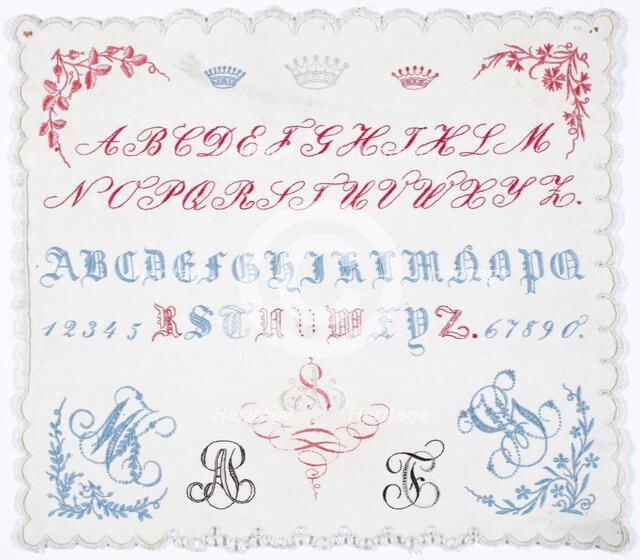 A B C D E F G H I K L M
N O P Q R S T U V W X Y Z.
A B C D E F G H I J K L M N O P Q
1 2 3 4 5 R S T U V W X Y Z. 6 7 8 9 0.
A F
Heritage Heritage